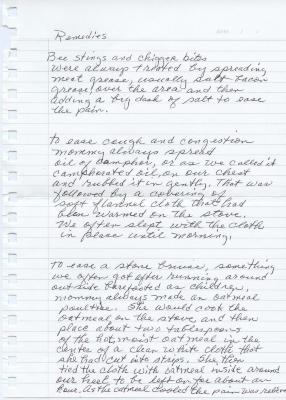 Remedies
Bee stings and chigger bites
were always treated by spreading
meat grease, usually salt bacon
grease over the area and then
adding a big dash of salt to ease
the pain.
To ease cough and congestion
mommy always spread
oil of camphor, or as we called it
camphorated oil, on our chest
and rubbed it in gently. That was
followed by a covering of
soft flannel cloth that had
been warmed on the stove.
We often slept with the cloth
in place until morning.
To ease a stone bruise, something
we often got after running around
outside barefooted as children,
mommy always made an oatmeal
poultice. She would cook the
oatmeal on the stove, and then
place about two tablespoons
of the hot, moist oatmeal in the
center of a clean white cloth that
she had cut into strips. She then
tied the cloth with oatmeal inside around
our heel to be left on for about an
hour. As the oatmeal cooled the pain was